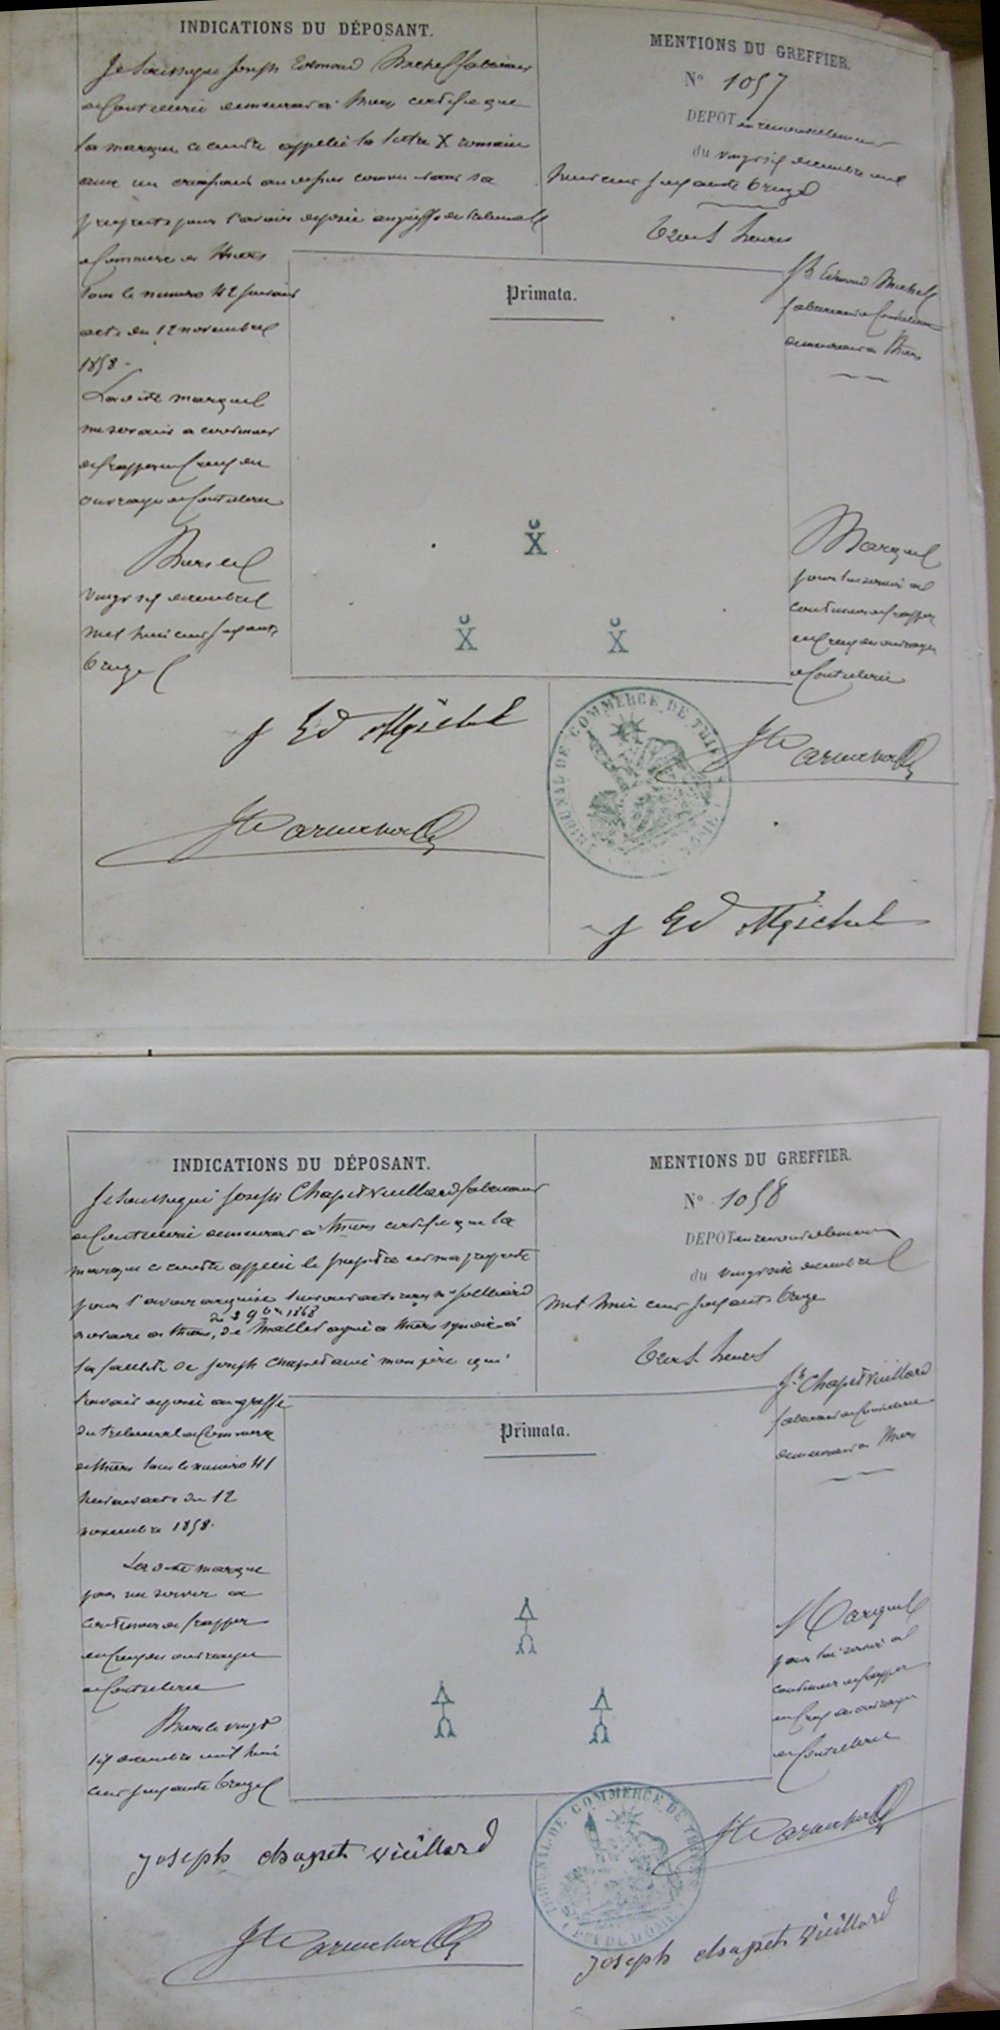 INDICATIONS DU DÉPOSANT.
Je soussigné Joseph Edmond Michel fabricant
de Coutellerie demeurant à Thiers certifie que
la marque ci contre appelée la lettre X romain
avec un croissant au dessus comme étant sa
propriété pour l'avoir déposée au greffe du tribunal
de Commerce de Thiers
sous le numero 42 suivant
acte du 12 novembre
1858.
La dite marque
me servant a continuer
de frapper en Creux du
ouvrages de Coutellerie
Thiers le
vingt six decembre
mil huit cent soixante
treize
J Ed Michel
MENTIONS DU GREFFIER.
N° 1057
DEPOT en renouvellement
du vingt six decembre mil
huit cent soixante treize
trois heures
Jh Edmond Michel
fabricant de Coutellerie
demeurant a Thiers
Primata.
X
X X
Marque
pour lui servir a
continuer de frapper
en Creux du ouvrages
de Coutellerie
TRIBUNAL DE COMMERCE DE THIERS
J Ed Michel
INDICATIONS DU DÉPOSANT.
Je soussigné Joseph Chapet Vieillard fabricant
de Coutellerie demeurant à Thiers certifie que la
marque ci contre appelée le est ma propriété
pour l'avoir acquise suivant acte reçu Me
notaire a Thiers, du 3 9bre 1868 de Mallet agréé a Thiers syndic de
la faillite de Joseph Chapet ainé mon père qui
l'avait déposée au greffe
du tribunal de Commerce
de Thiers sous le numero 41
suivant acte du 12
novembre 1858.
La dite marque
pour me servir a
continuer de frapper
en Creux du ouvrages
de Coutellerie
Thiers le vingt
six decembre mil huit
cent soixante treize
Joseph chapet vieillard
MENTIONS DU GREFFIER.
N° 1058
DEPOT en renouvellement
du vingt six decembre
mil huit cent soixante treize
trois heures
Jh Chapet Vieillard
fabricant de Coutellerie
demeurant a Thiers
Primata.
Marque
pour lui servir a
continuer de frapper
en Creux du ouvrages
de Coutellerie
TRIBUNAL DE COMMERCE DE THIERS (PUY DE DOME)
Joseph chapet vieillard